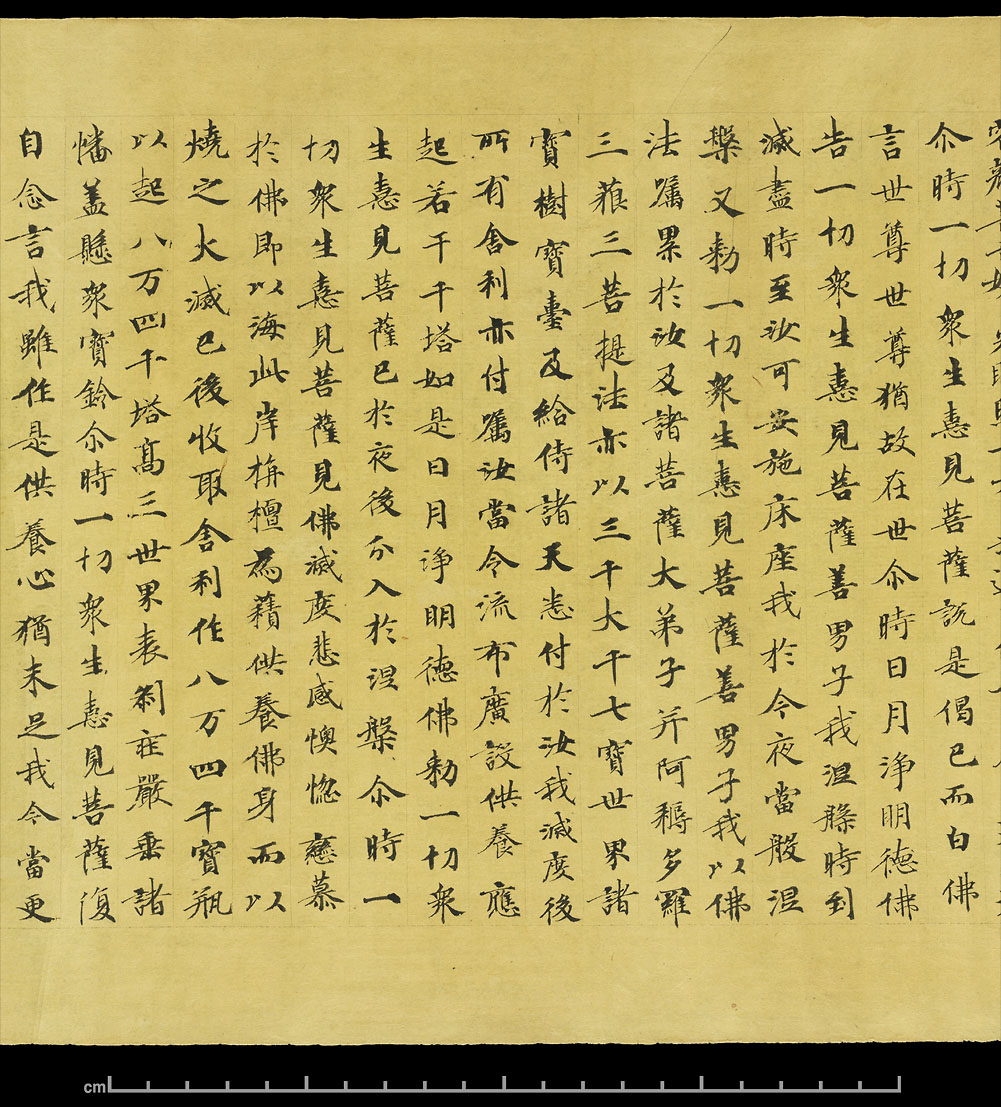 尒時一切衆生憙見菩薩說是偈已而白佛
言世尊世尊猶故在世尒時日月淨明德佛
告一切衆生憙見菩薩善男子我涅槃時到
滅盡時至汝可安施床座我於今夜當般涅
槃又勑一切衆生憙見菩薩善男子我以佛
法囑累於汝及諸菩薩大弟子并阿耨多羅
三藐三菩提法亦以三千大千七寶世界諸
寶樹寶臺及給侍諸天悉付於汝我滅度後
所有舍利亦付囑汝當令流布廣設供養應
起若干千塔如是日月淨明德佛勑一切衆
生憙見菩薩已於夜後分入於涅槃尒時一
切衆生憙見菩薩見佛滅度悲感懊惱戀慕
於佛即以海此岸栴檀為藉供養佛身而以
燒之火滅已後收取舍利作八万四千寶瓶
以起八万四千塔高三世界表剎莊嚴垂諸
幡蓋懸衆寶鈴尒時一切衆生憙見菩薩復
自念言我雖作是供養心猶未足我今當更
cm